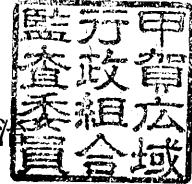 甲賀広域
行政組合
監査委員